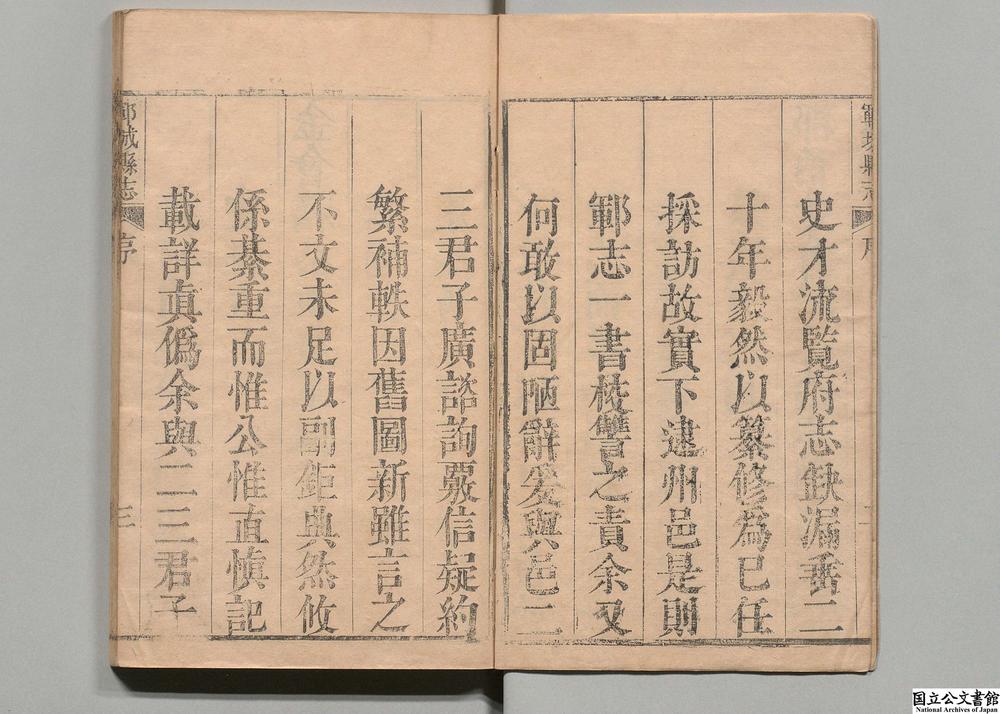 鄆城縣志
序
史才流覽府志缺漏垂二
十年毅然以纂修為已任
採訪故實下逮州邑是則
鄆志一書挍讐之責余又
何敢以固陋辭爰與邑二
三君子廣諮詢覈信疑約
繁補軼因舊圖新雖言之
不文未足以副鉅典然攸
係綦重而惟公惟直慎記
載詳眞僞余與二三君子
鄆城縣志
序
三
国立公文書館
National Archives of Japan